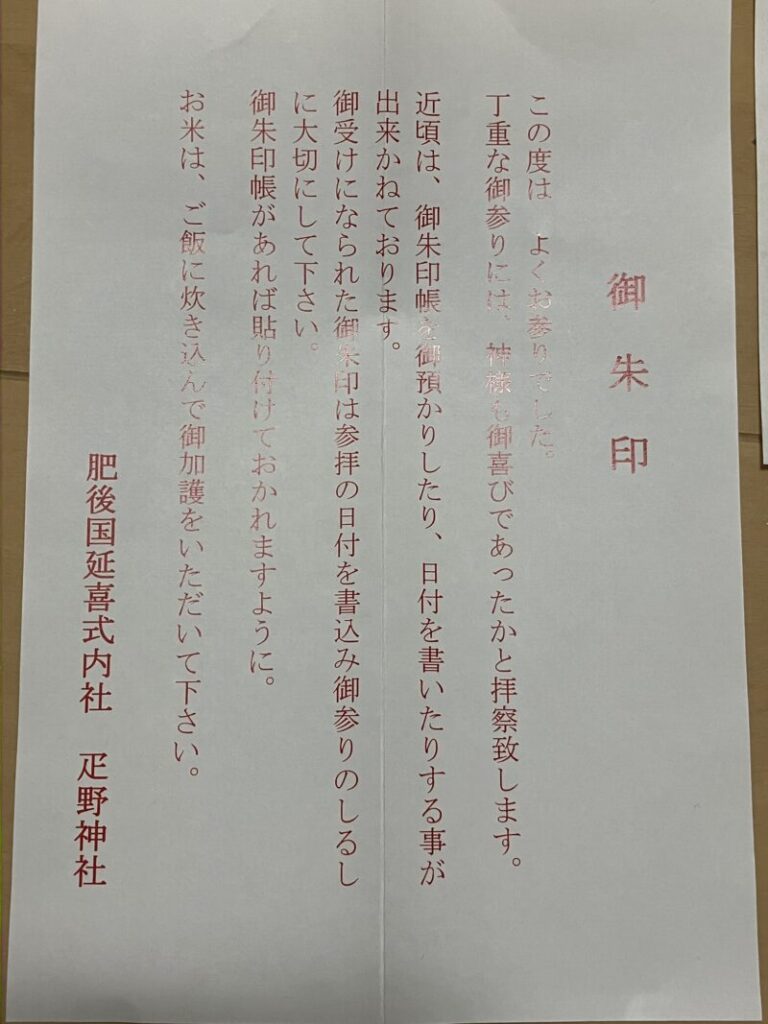 御朱印
この度は　よくお参りでした。
丁重な御参りには、神様も御喜びであったかと拝察致します。
近頃は、御朱印帳を御預かりしたり、日付を書いたりする事が
出来かねております。
御受けになられた御朱印は参拝の日付を書込み御参りのしるし
に大切にして下さい。
御朱印帳があれば貼り付けておかれますように。
お米は、ご飯に炊き込んで御加護をいただいて下さい。
肥後国延喜式内社　疋野神社